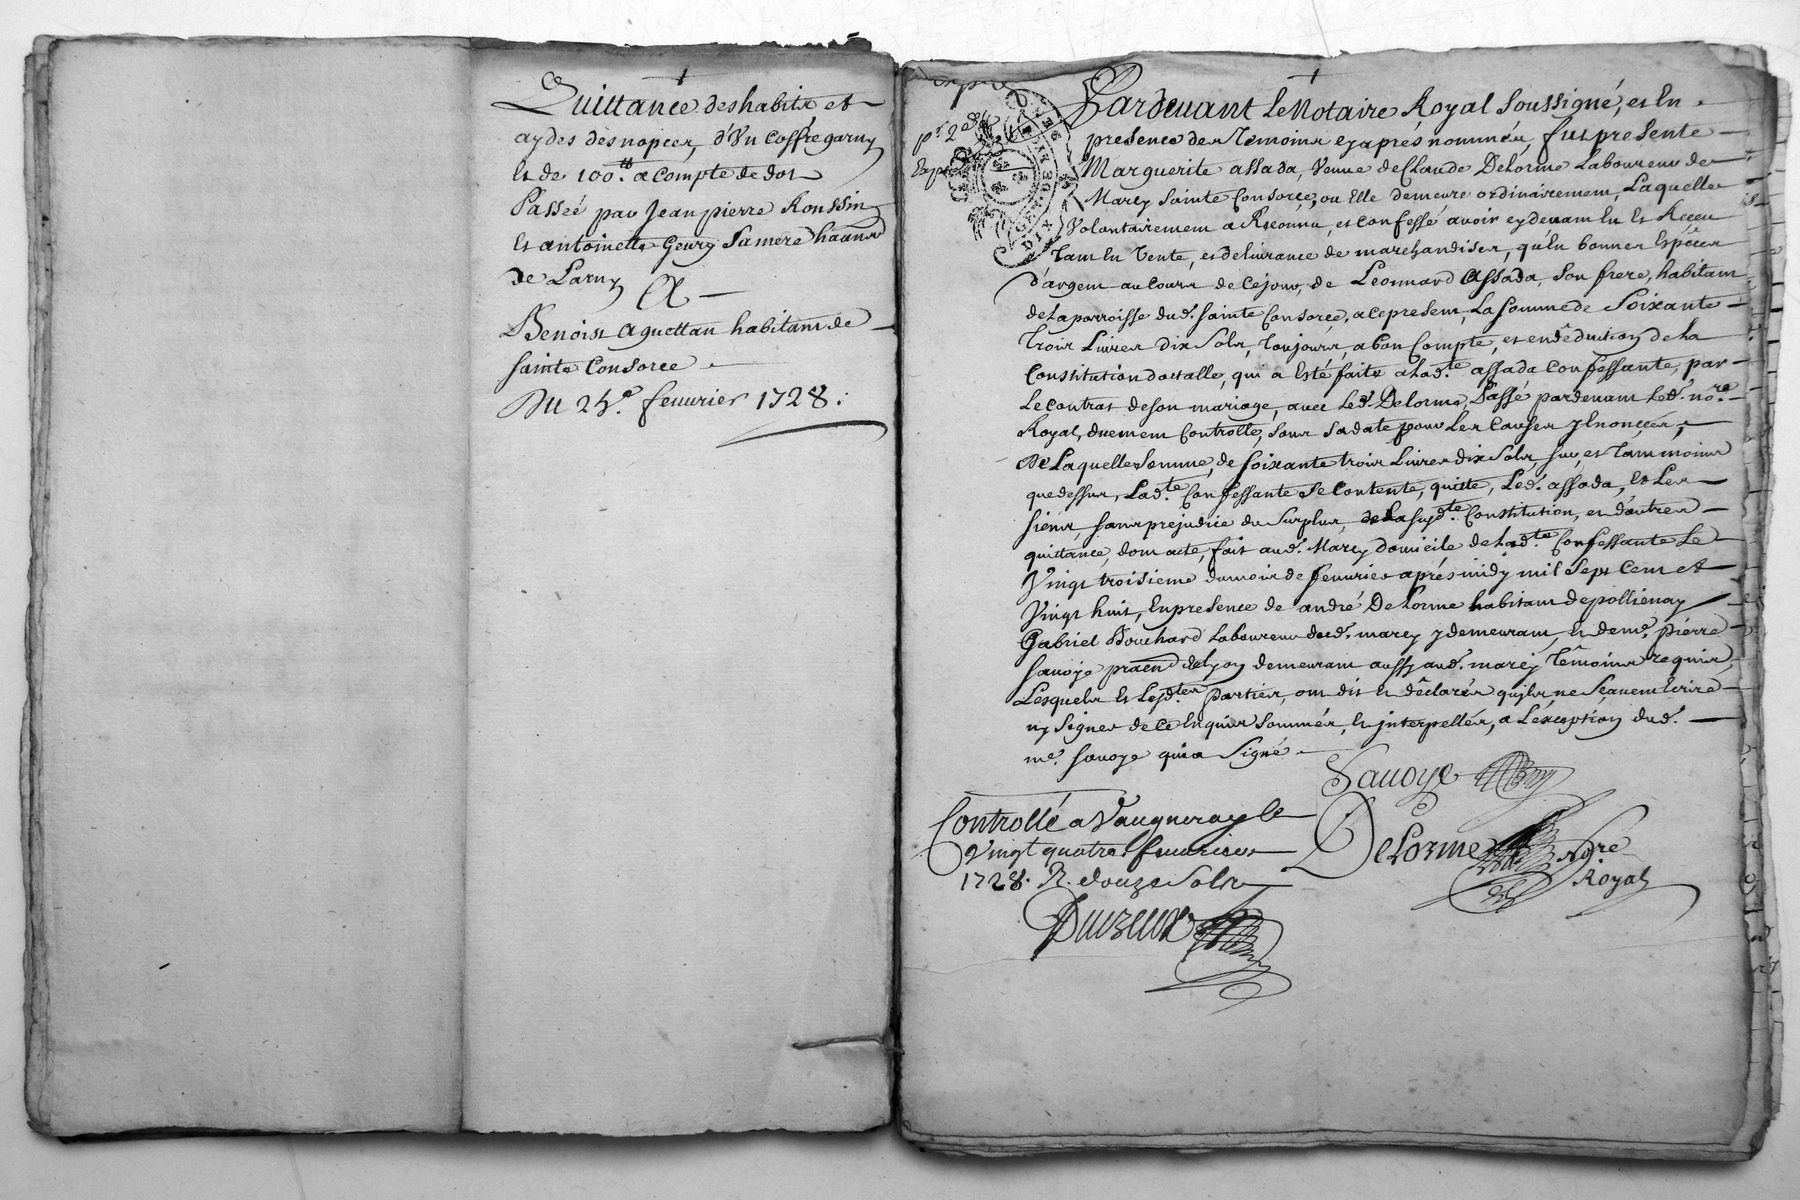 Quittance des habits et
aydes des nopces, d'Vn coffre garny
et de 100.tt a compte de dot
Passée par Jean pierre Roussin
Et antoinette Geury Sa mere habans
de Larny
A
Benoist aguettan habitant de
sainte Consorce
Du 25.e feuurier 1728.
expié
pr 2 des
Expe
Pardeuant Le Notaire Royal Soussigné, et En
presence des Temoins cyaprés nommés, fut presente
Marguerite assada, Veuue de Claude DeLorme Laboureur de
Marcy Sainte Consorce, ou Elle demeure ordinairement, Laquelle
Volontairement a Reconnu, et Confessé auoir cydeuant Eu Et Receu
Tant En Vente, et deliurance de marchandises, qu'En bonnes Espêces
d'argent au Cours de Ce jour, de Léonnard Assada, Son frere, habitant
de La parroisse dud. Sainte Consorce, a Ce present, La Somme de Soixante
Trois Liures dix Sols, Toujours, a bon Compte, et en dêduction de La
Constitution dottalle, qui a Esté faite a Lad.te assada Confessante, par
Le Contrat de Son mariage, auec Led. DeLorme, Passé pardeuant Led. no.re
Royal, duement Controllé, Sous Sa date pour Les Causes y Enoncées,
De Laquelle Somme, de soixante trois Liures dix Sols, sur, et Tant moins
que dessus, Lad.te Confessante Se Contente, quitte, Led. assada, Et Les
siens, sans prejudice du Surplus, de La susd.te Constitution, et d'autres
quittance, dont acte, fait aud. Marcy domicile de Lad.te Confessante Le
Vingt troisieme du mois de feuurier aprés midy mil Sept Cent et
Vingt huit, En presence de andré DeLorme habitant de pollienay
Gabriel Bouchard Laboureur dud. marcy y demeurant, et de me. pierre
sauoye praen de Lyon demeurant aussy aud. marcy Têmoins requis,
Lesquels Et Lesd.tes parties, ont dit et dêclarés qu'ils ne Sçauent Ecrire
ny Signer de Ce Enquis Sommés, et interpellés, a L'éxception dud.
me. sauoye qui a Signé
Sauoye
Controllé a Vaugneray le
Vingt quatre feuurier
1728. R. douze Sols
DeLorme no.re
Royal